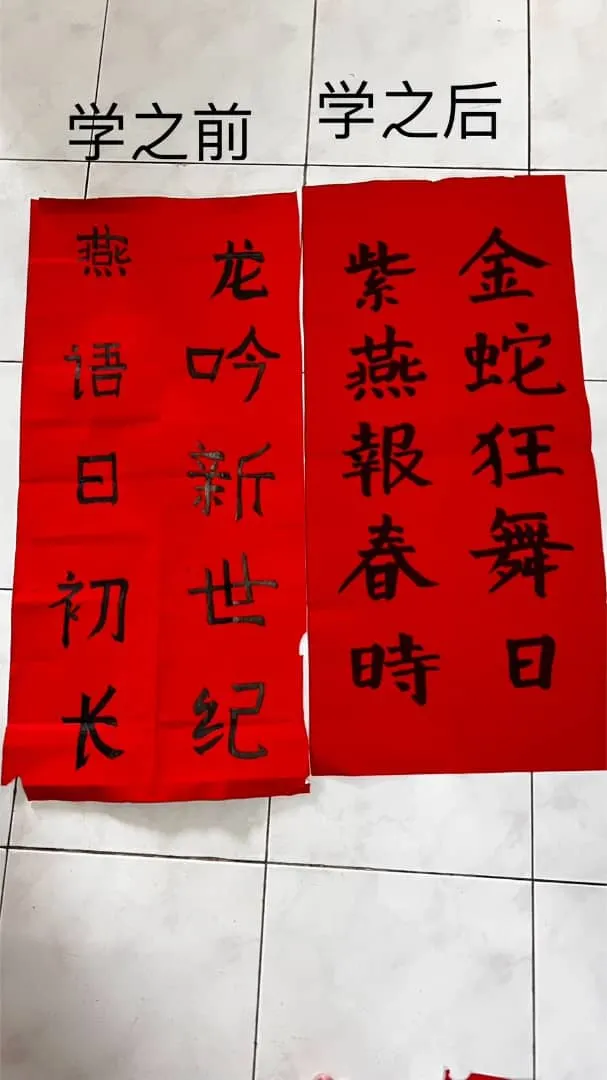 学之前
学之后
龙吟新世纪
燕语日初长
金蛇狂舞日
紫燕報春時